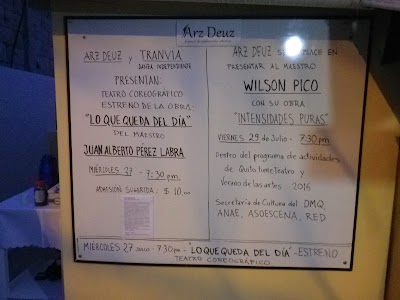 Arz Deuz
ARZ DEUZ y TRANVIA
DANZA INDEPENDIENTE
PRESENTAN:
TEATRO COREOGRÁFICO
ESTRENO DE LA OBRA:
"LO QUE QUEDA DEL DÍA"
DEL MAESTRO
JUAN ALBERTO PÉREZ LABRA
MIÉRCOLES 27 - 7:30 pm.
ADMISIÓN SUGERIDA: $ 10,00
ARZ DEUZ SE COMPLACE EN
PRESENTAR AL MAESTRO
WILSON PICO
CON SU OBRA
"INTENSIDADES PURAS"
VIERNES 29 de Julio - 7:30 pm
Dentro del programa de actividades
de Quito tiene Teatro y
Verano de las artes 2016
Secretaría de Cultura del DMQ,
ANAE, ASOESCENA, RED
MIÉRCOLES 27 JULIO - 7:30 pm - "LO QUE QUEDA DEL DÍA" - ESTRENO
TEATRO COREOGRÁFICO